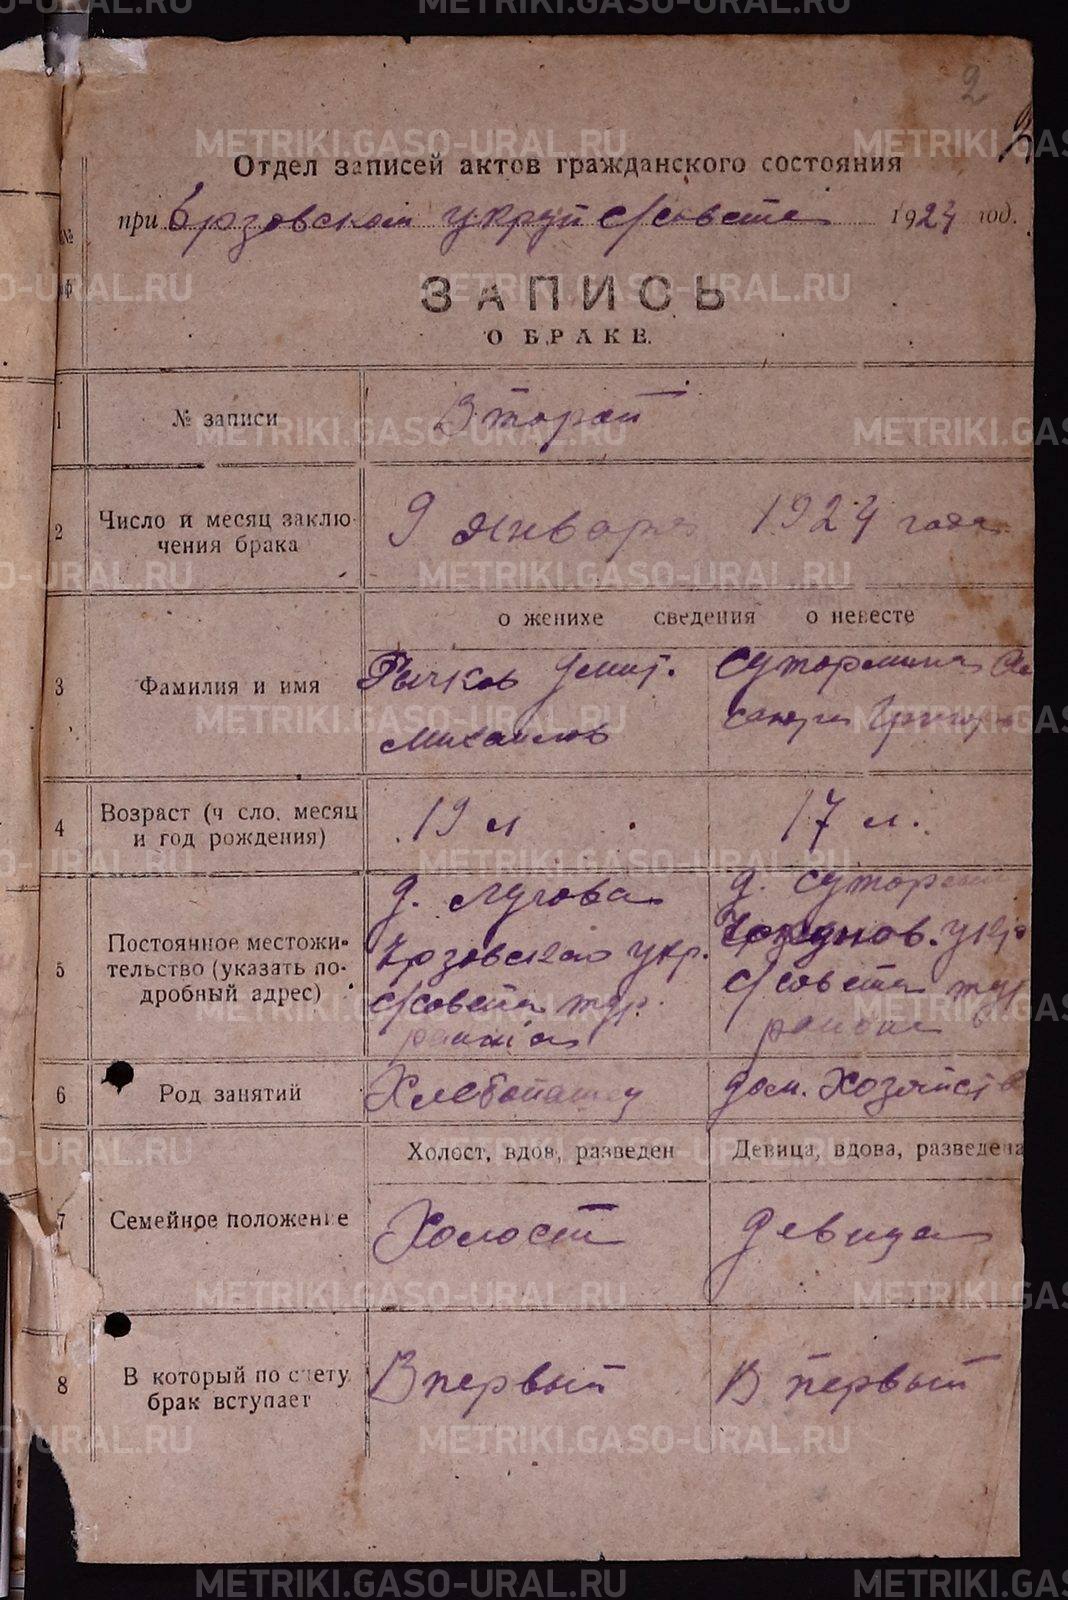 2
Отдел записей актов гражданского состояния
при укруп с/совете 1924 год.
№
ЗАПИСЬ
О БРАКЕ.
1 № записи Второй
2 Число и месяц заклю-
чения брака 9 января 1924 года
о женихе сведения о невесте
3 Фамилия и имя
Рычков Дмит. Михаилов
Сутормина Григорь
4 Возраст (ч сло, месяц
и год рождения) 19 л 17 л.
5 Постоянное местожи-
тельство (указать по-
дробный адрес)
д. Лугова
укр.
с/совета тур.
района
д. Сутор
укр
с/совета тур
района
6 Род занятий Хлебопашец дом. Хозяйств
Холост, вдов, разведен Девица, вдова, разведена
7 Семейное положение Холост девица
8 В который по счету
брак вступает В первый В первый
METRIKI.GASO-URAL.RU